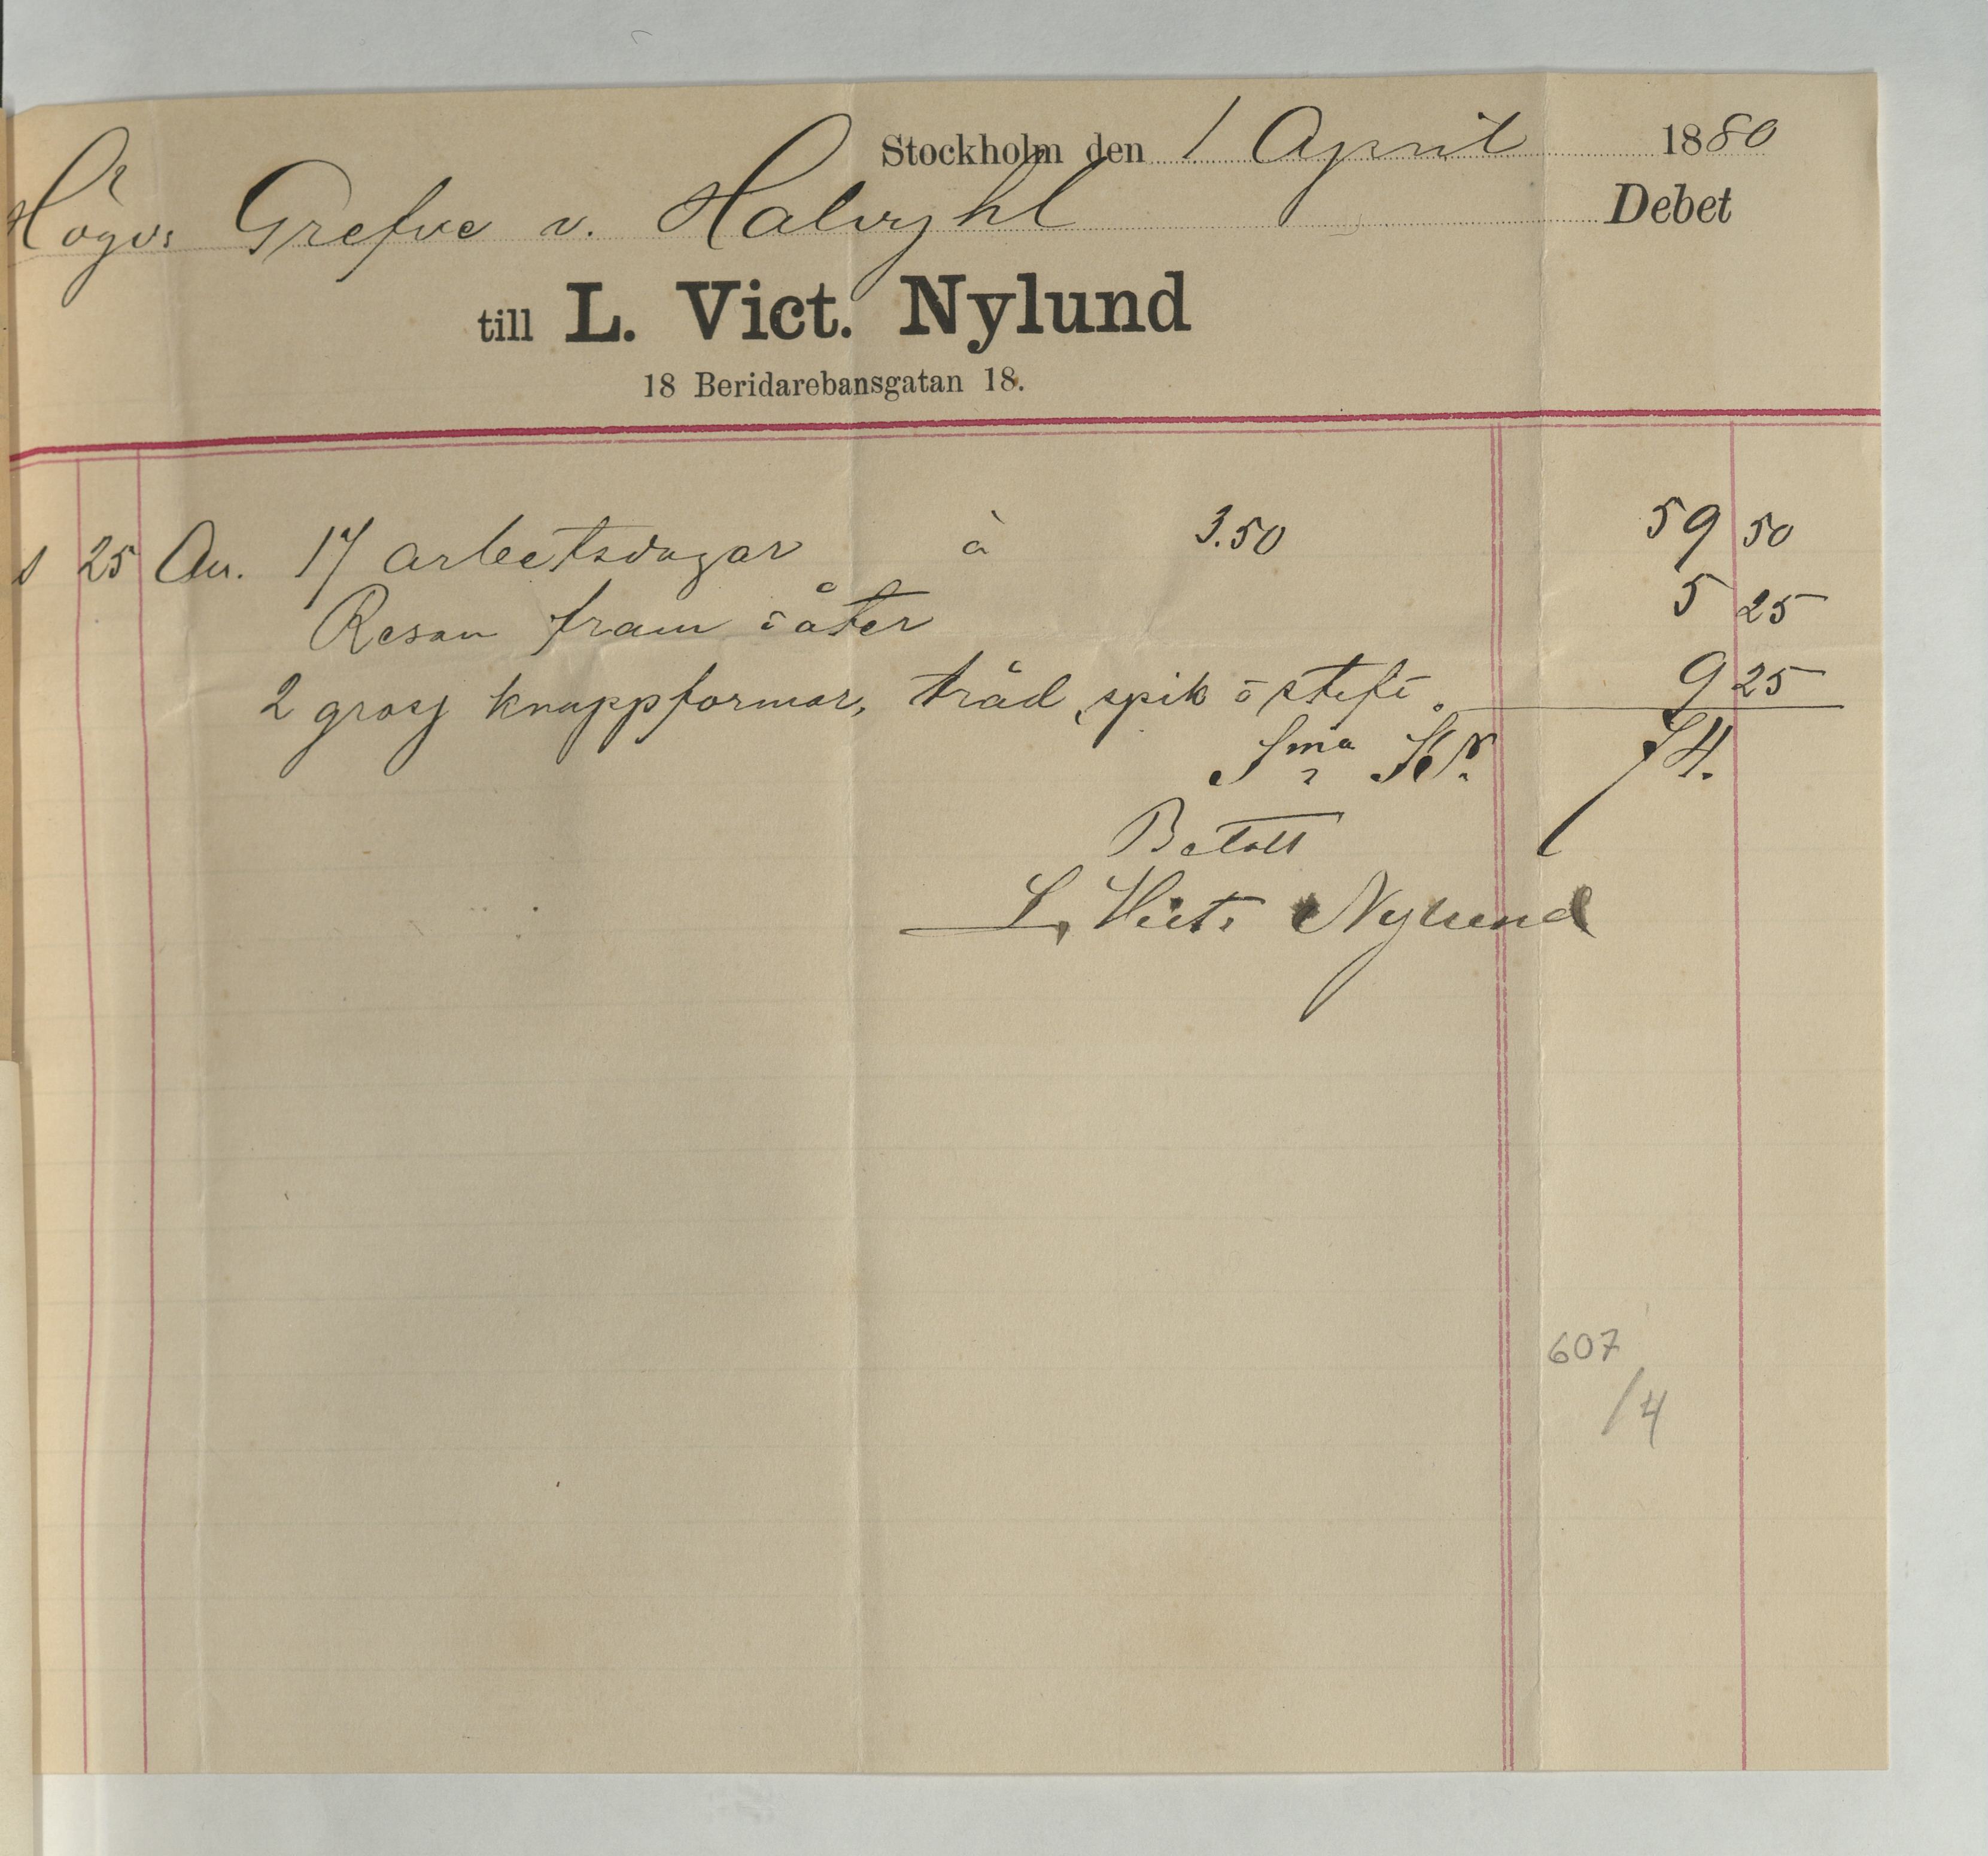 Stockholm den 1 April 1880
Högv: Grefve v. Halvyhl Debet
till L. Vict. Nylund
18 Beridarebansgatan 18.
25 17 arbetsdagar à 3.50 59 50
Resan fram o åter 5 25
2 gross knappformar, tråd, spik o stift. 9 25
Sma Kr. 74.
Betalt
L. Vict. Nylund
607
/4